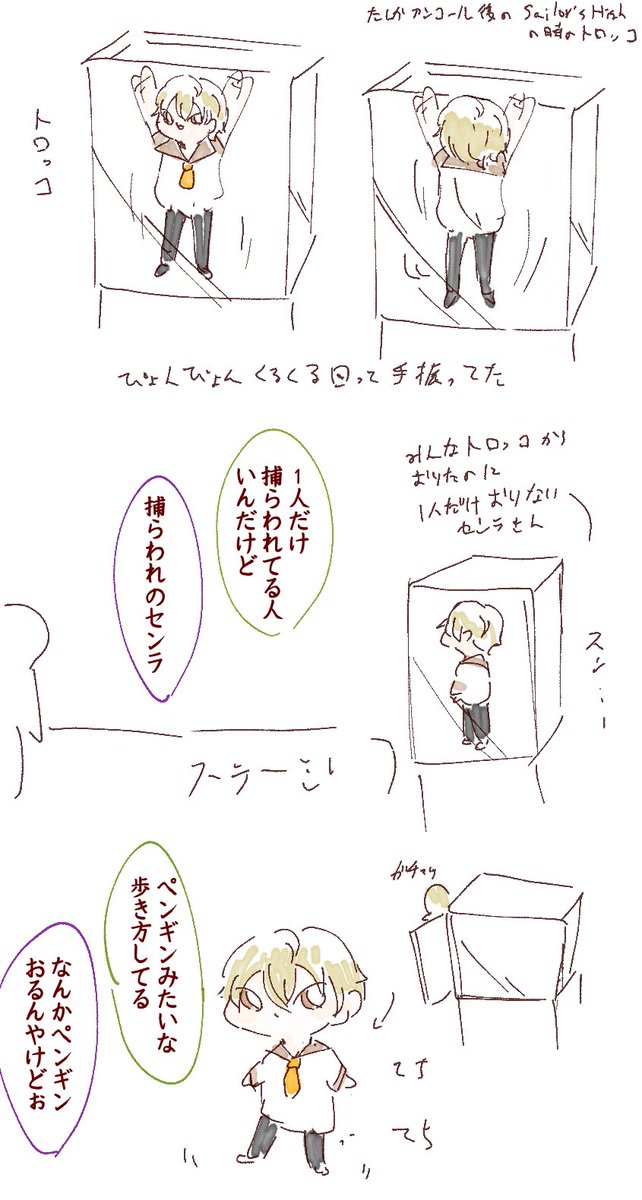 たしかアンコール後の Sailor's High
の時のトロッコ
トロッコ
ぴょんぴょんくるくる回って手振ってた
みんなトロッコから
おりたのに
1人だけおりない
センラさん
1人だけ
捕らわれてる人
いんだけど
捕らわれのセンラ
スン…
ステージ
ガチャッ
ペンギンみたいな
歩き方してる
なんかペンギン
おるんやけどぉ
てち
てち